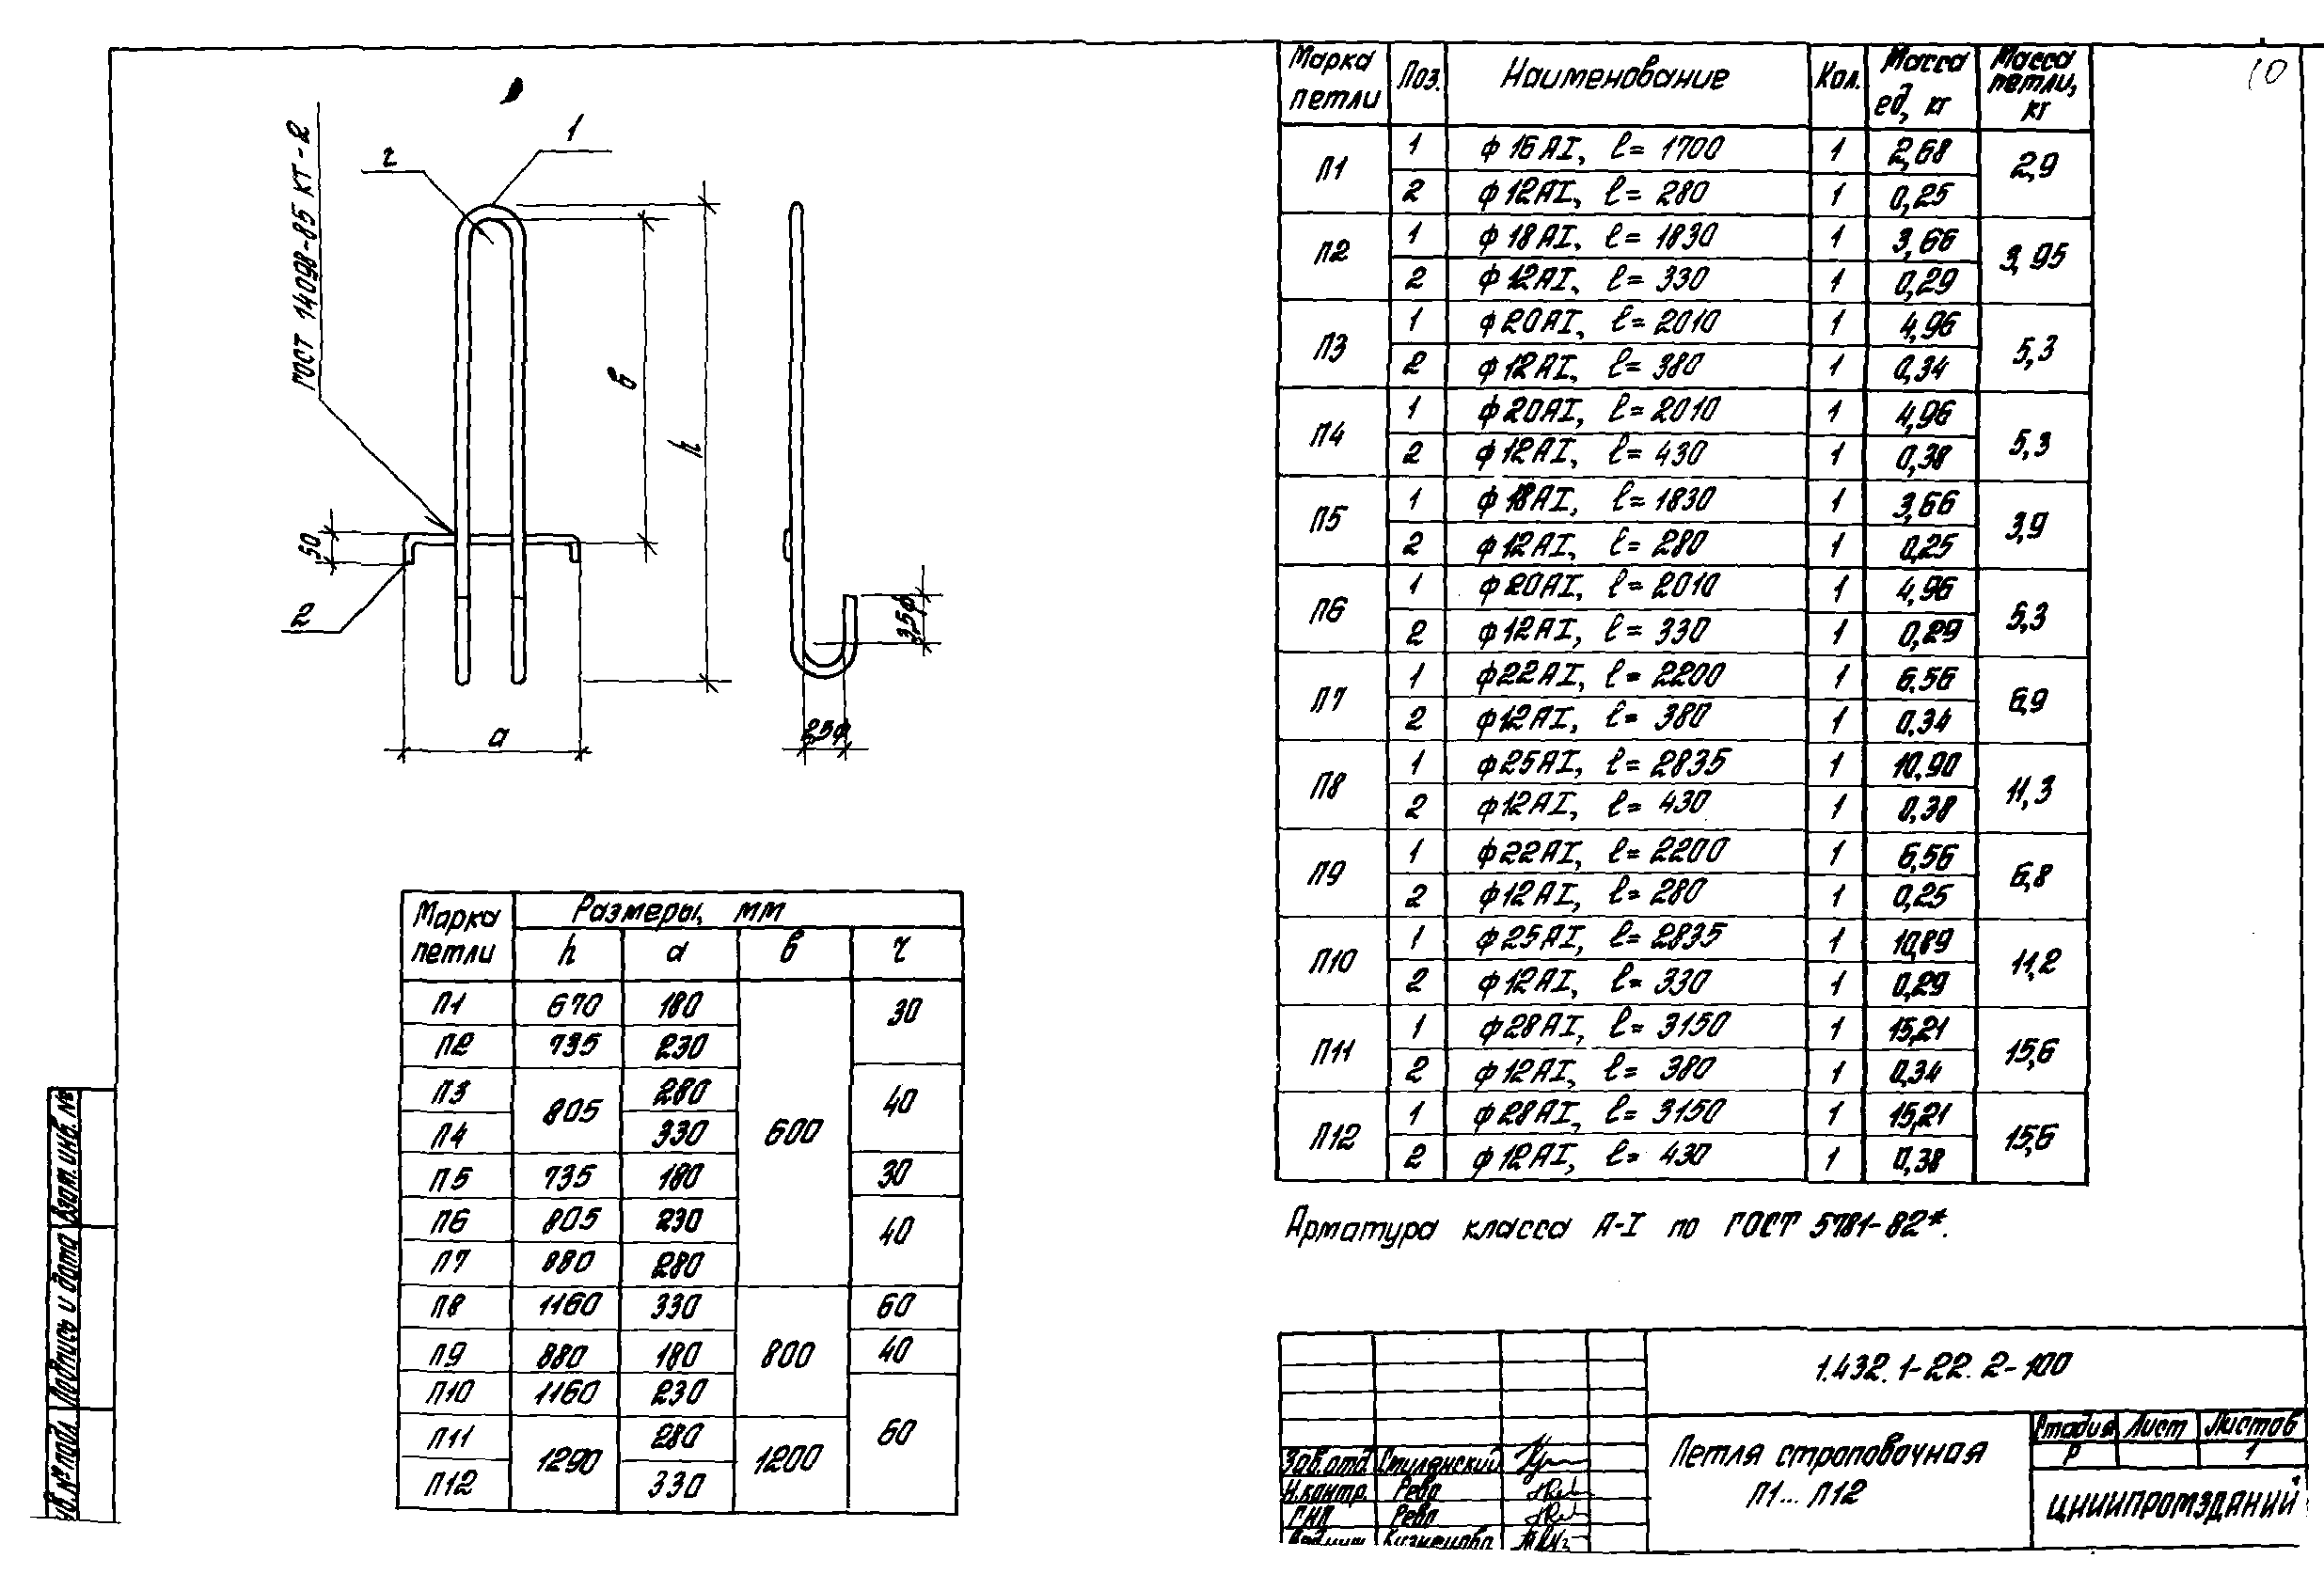 10
ГОСТ 14098-85 КТ-2
1
r
в
h
50
2
а
3,5ф
2,5ф
Марка петли | Размеры, мм
h | а | в | r
П1 | 670 | 180 | 600 | 30
П2 | 735 | 230
П3 | 805 | 280 | 40
П4 | 330
П5 | 735 | 180 | 30
П6 | 805 | 230 | 40
П7 | 880 | 280
П8 | 1160 | 330 | 800 | 60
П9 | 880 | 180 | 40
П10 | 1160 | 230 | 60
П11 | 1290 | 280 | 1200
П12 | 330
Марка петли | Поз. | Наименование | Кол. | Масса ед, кг | Масса петли, кг
П1 | 1 | ф16АI, ℓ=1700 | 1 | 2,68 | 2,9
2 | ф12АI, ℓ=280 | 1 | 0,25
П2 | 1 | ф18АI, ℓ=1830 | 1 | 3,66 | 3,95
2 | ф12АI, ℓ=330 | 1 | 0,29
П3 | 1 | ф20АI, ℓ=2010 | 1 | 4,96 | 5,3
2 | ф12АI, ℓ=380 | 1 | 0,34
П4 | 1 | ф20АI, ℓ=2010 | 1 | 4,96 | 5,3
2 | ф12АI, ℓ=430 | 1 | 0,38
П5 | 1 | ф18АI, ℓ=1830 | 1 | 3,66 | 3,9
2 | ф12АI, ℓ=280 | 1 | 0,25
П6 | 1 | ф20АI, ℓ=2010 | 1 | 4,96 | 5,3
2 | ф12АI, ℓ=330 | 1 | 0,29
П7 | 1 | ф22АI, ℓ=2200 | 1 | 6,56 | 6,9
2 | ф12АI, ℓ=380 | 1 | 0,34
П8 | 1 | ф25АI, ℓ=2835 | 1 | 10,90 | 11,3
2 | ф12АI, ℓ=430 | 1 | 0,38
П9 | 1 | ф22АI, ℓ=2200 | 1 | 6,56 | 6,8
2 | ф12АI, ℓ=280 | 1 | 0,25
П10 | 1 | ф25АI, ℓ=2835 | 1 | 10,89 | 11,2
2 | ф12АI, ℓ=330 | 1 | 0,29
П11 | 1 | ф28АI, ℓ=3150 | 1 | 15,21 | 15,6
2 | ф12АI, ℓ=380 | 1 | 0,34
П12 | 1 | ф28АI, ℓ=3150 | 1 | 15,21 | 15,6
2 | ф12АI, ℓ=430 | 1 | 0,38
Арматура класса А-I по ГОСТ 5781-82*.
1.432.1-22.2-100
Петля строповочная
П1... П12
Стадия | Лист | Листов
Р | 1
ЦНИИПРОМЗДАНИЙ
Зав.отд.
Н.контр. Рева
ГИП Рева
Взам. инв. №
Подпись и дата
Инв.№ подл.